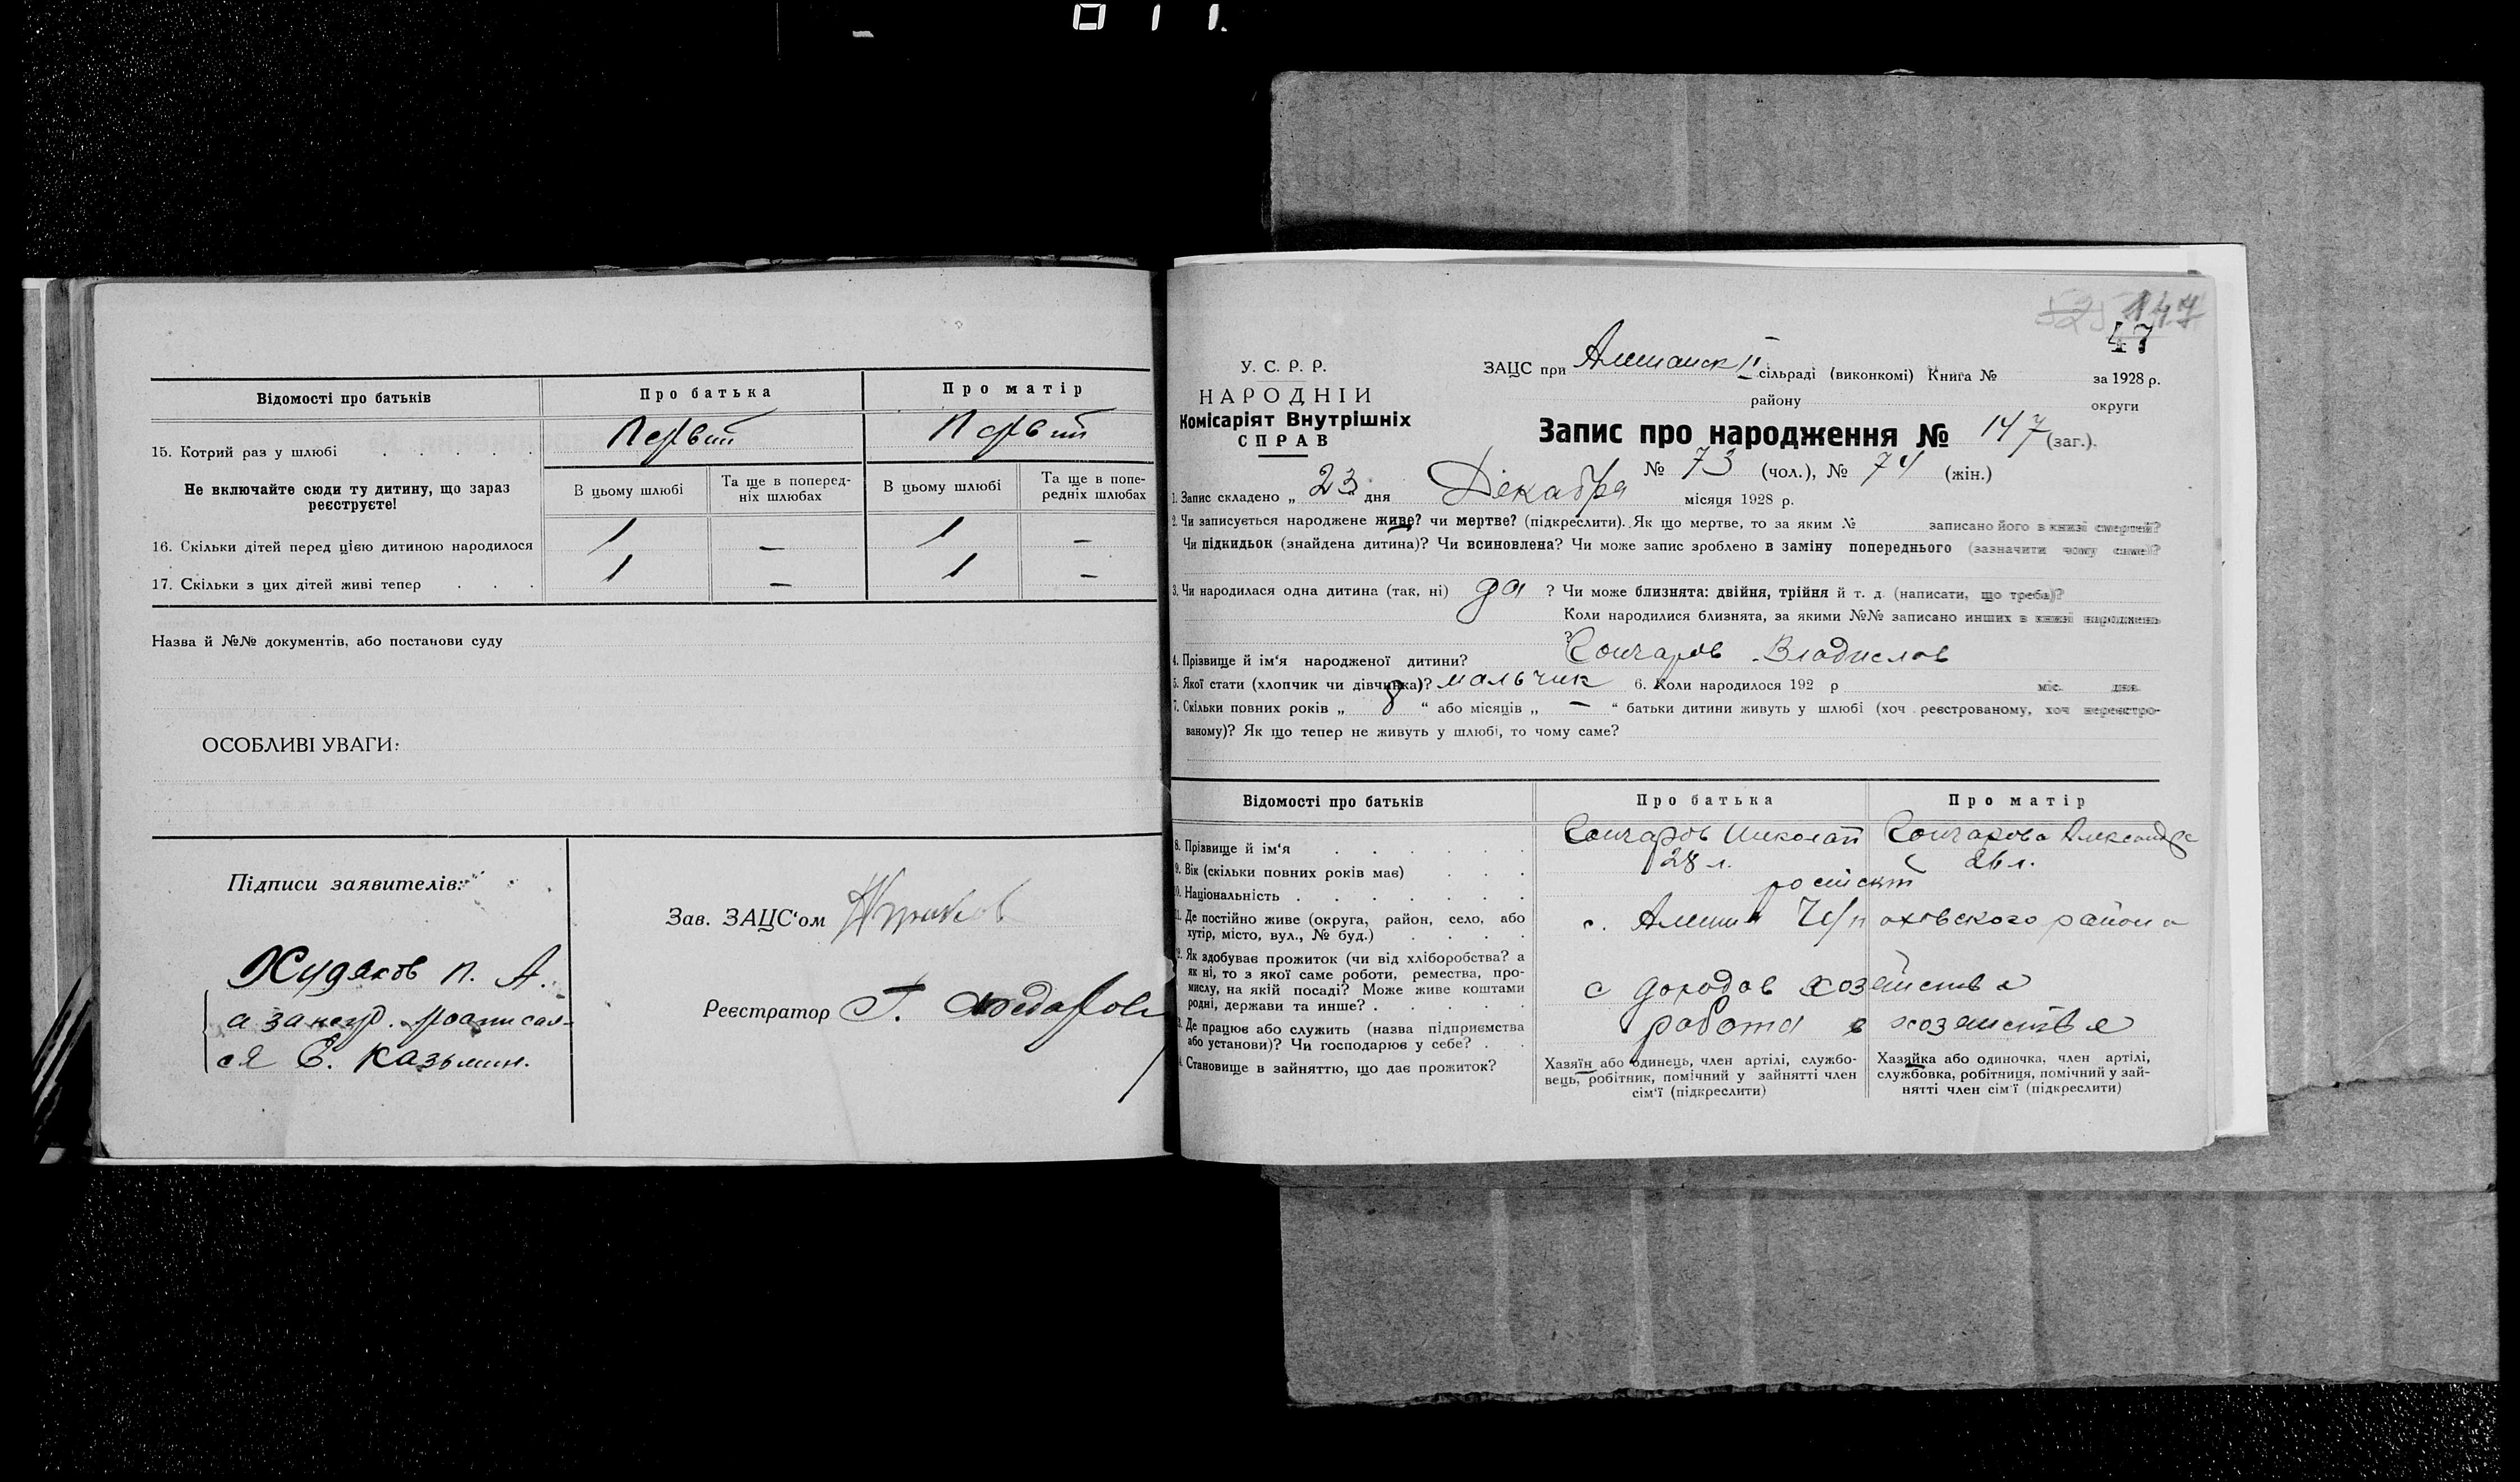 Відомості про батьків
Про батька
Про матір
15. Котрий раз у шлюбі
Первый
Первый
Не включайте сюди ту дитину, що зараз реєструєте!
В цьому шлюбі
Та ще в попередніх шлюбах
В цьому шлюбі
Та ще в попередніх шлюбах
16. Скільки дітей перед цією дитиною народилося
1 — 1 —
17. Скільки з цих дітей живі тепер
1 — 1 —
Назва й №№ документів, або постанови суду
ОСОБЛИВІ УВАГИ:
Підписи заявителів:
Худяков П. А.
а за негр. росписал-
ся Е. Казьмин.
Зав. ЗАЦС'ом
Реєстратор Г.
147
47
У. С. Р. Р.
НАРОДНІЙ
Комісаріят Внутрішніх
СПРАВ
ЗАЦС при II сільраді (виконкомі) Книга № за 1928 р.
району округи
Запис про народження № 147 (заг.).
№ 73 (чол.), № 74 (жін.)
1. Запис складено „ 23 дня Декабря місяця 1928 р.
2. Чи записується народжене живе? чи мертве? (підкреслити). Як що мертве, то за яким № записано його в книзі смертей?
Чи підкидьок (знайдена дитина)? Чи всиновлена? Чи може запис зроблено в заміну попереднього (зазначити чому саме)?
3. Чи народилася одна дитина (так, ні) да ? Чи може близнята: двійня, трійня й т. д. (написати, що треба)?
Коли народилися близнята, за якими №№ записано инших в книзі народжень
?
4. Прізвище й ім'я народженої дитини? Гончаров Владислов
5. Якої стати (хлопчик чи дівчинка)? мальчик 6. Коли народилося 192 р міс. дня
7. Скільки повних років „ 8 “ або місяців „ — “ батьки дитини живуть у шлюбі (хоч реєстрованому, хоч нереєстро-
ваному)? Як що тепер не живуть у шлюбі, то чому саме?
Відомості про батьків
Про батька
Про матір
8. Прізвище й ім'я
Гончаров Николай
Гончарова Александра
9. Вік (скільки повних років має)
28 л.
26 л.
10. Національність
11. Де постійно живе (округа, район, село, або
хутір, місто, вул., № буд.)
с. района
12. Як здобуває прожиток (чи від хліборобства? а
як ні, то з якої саме роботи, ремества, про-
мислу, на якій посаді? Може живе коштами
родні, держави та инше?
с доходов хозяйства
13. Де працює або служить (назва підприємства
або установи)? Чи господарює у себе?
работа в хозяйстве
14. Становище в зайняттю, що дає прожиток?
Хазяїн або одинець, член артілі, службо-
вець, робітник, помічний у зайнятті член
сім'ї (підкреслити)
Хазяйка або одиночка, член артілі,
службовка, робітниця, помічний у зай-
нятті член сім'ї (підкреслити)